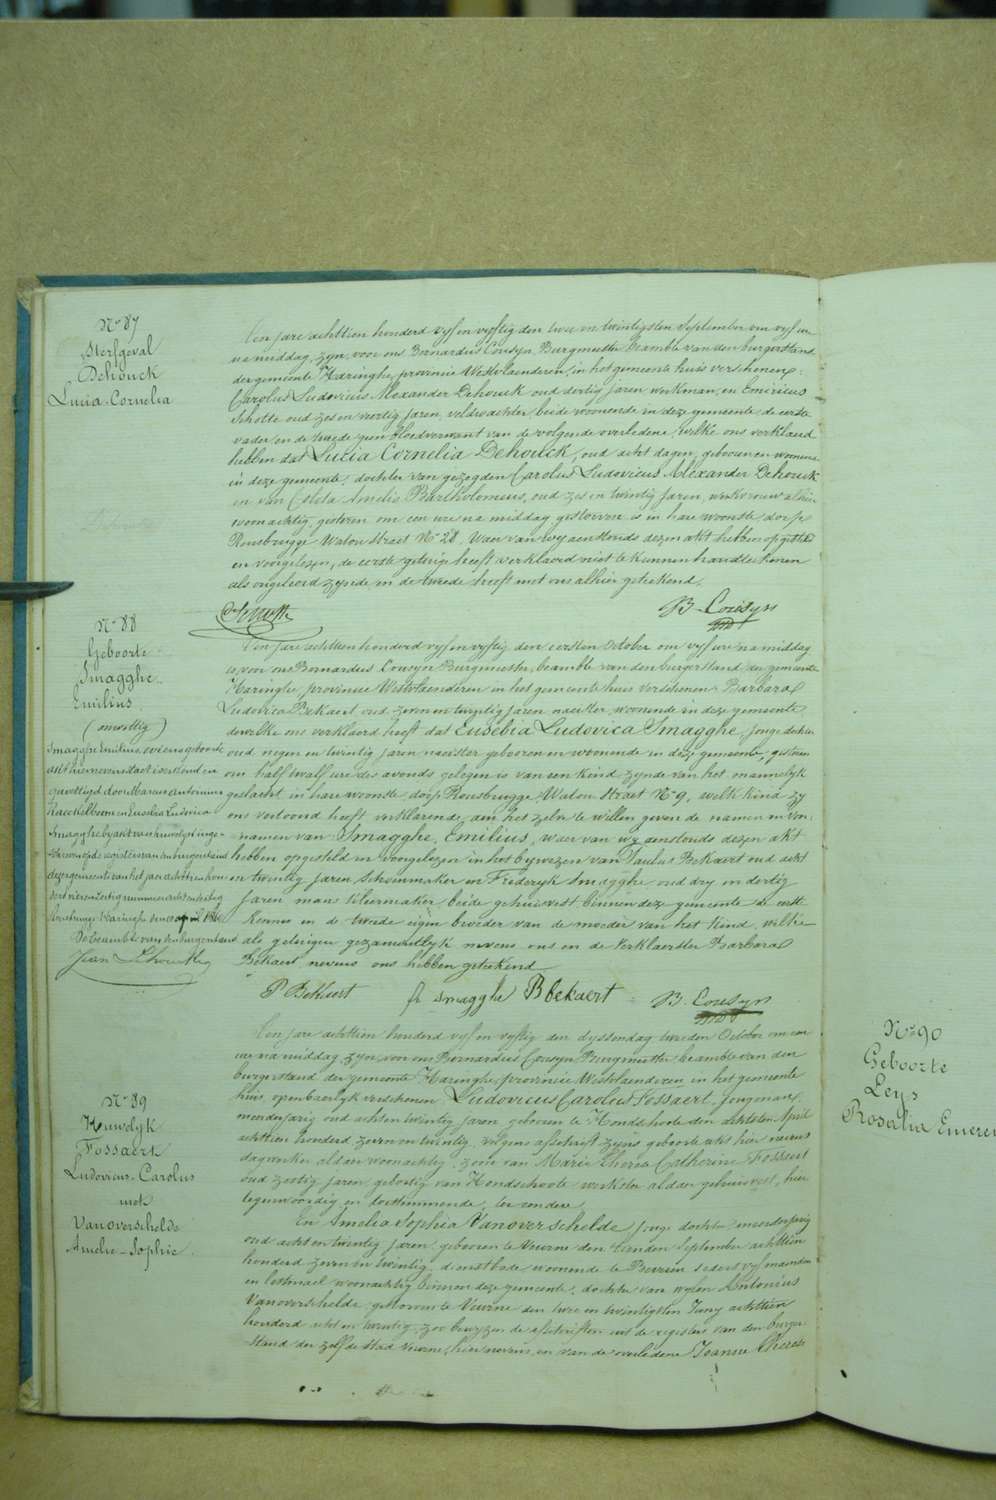 N° 87
Sterfgeval
Dehouck
Lucia-Cornelia
Ten jare achttien honderd vyf en vyftig den twee en twintigsten September om vyf ure
na middag, zyn, voor ons Bernardus Cousyn, Burgmeester, beambte van den burgerstand
der gemeente Haringhe, provincie Westvlaenderen, in het gemeente huis verschenen:
Carolus Ludovicus Alexander Dehouck oud dertig jaren werkman, en Emericus
Schotte oud zes en veertig jaren, veldwachter, beide woonende in deze gemeente, de eerste
vader en de tweede geen bloedverwant van de volgende overledene, welke ons verklaerd
hebben dat Lucia Cornelia Dehouck, oud acht dagen, geboren en woonende
in deze gemeente, dochter van gezegden Carolus Ludovicus Alexander Dehouck
en van Coleta Amelia Bartholomeus, oud zes en twintig jaren, werkvrouw alhier
woonachtig, gisteren om een ure na middag gestorven is in hare woonste, dorp
Rousbrugge Watou straet N° 28. Waer van wy aenstonds dezen akt hebben opgesteld
en voorgelezen, de eerste getuige heeft verklaerd niet te kunnen handteekenen
als ongeleerd zynde, en de tweede heeft met ons alhier geteekend.
B. Cousyn
N° 88
Geboorte
Smagghe
Emilius.
(onwettig)
Ten jare achttien honderd vyf en vyftig den eersten October om vyf ure na middag
is voor ons Bernardus Cousyn Burgmeester, beambte van den burgerstand der gemeente
Haringhe, provincie Westvlaenderen in het gemeente huis verschenen Barbara
Ludovica Bekaert oud zeven en twintig jaren naeister, woonende in deze gemeente
dewelke ons verklaerd heeft dat Eusebia Ludovica Smagghe, jonge dochter
oud negen en twintig jaren naeister geboren en woonende in deze gemeente, gisteren
om half twalf ure des avonds gelegen is van een kind zynde van het mannelyk
geslacht in hare woonste dorp Rousbrugge Watou straet N° 9, welk kind zy
ons vertoond heeft verklarende aen het zelve te willen geven de namen en voor-
namen van Smagghe, Emilius, waer van wy aenstonds dezen akt
hebben opgesteld en voorgelezen in het bywezen van Paulus Bekaert oud acht
en twintig jaren schoenmaker en Frederyk Smagghe oud dry en dertig
jaren man kleermaker, beide gehuisvest binnen deze gemeente de eerste
kennis en de tweede eigen broeder van de moeder van het kind, welke
als getuigen gezamentlyk nevens ons en de verklaerster Barbara
Bekaert, nevens ons hebben geteekend
Smagghe Emilius, wiens geboorte
akt hiernevenstaet is erkend en
gewettigd door Marcus Antonius
Haeckelboom en Eusebia Ludovica
Smagghe by akt van huwelyk inge-
schreven in de registers van den burgerstand
dezer gemeente van het jaer achttien hon
derd vier en zestig nummer acht en dertig
Rousbrugge Haringhe den april 1864
De beambte van den burgerstand
P Bekaert fr Smagghe B bekaert B. Cousyn
N° 89
Huwelyk
Fossaert
Ludovicus-Carolus
met
Vanoverschelde
Amelie-Sophie.
Ten jare achttien honderd vyf en vyftig den dyssendag tweeden October om een
ure na middag zyn, voor ons Bernardus Cousyn Burgmeester beambte van den
burgerstand der gemeente Haringhe, provincie Westvlaenderen, in het gemeente
huis, openbaerlyk verschenen Ludovicus Carolus Fossaert, jongman,
meerderjarig oud acht en twintig jaren, geboren te Hondschoote den achtsten April
achttien honderd zeven en twintig, volgens afschrift zyns geboorte akt hier nevens
dagwerker aldaer woonachtig, zoon van Marie Theresia Catherine Fossaert
oud zestig jaren, geboortig van Hondschoote, werkster aldaer gehuisvest, hier
tegenwoordig en toestemmende, ter eendere
En Amelia Sophia Vanoverschelde jonge dochter meerderjarig
oud acht en twintig jaren, geboren te Veurne den tienden September achttien
honderd zeven en twintig, dienstbode woonende te Beveren sedert vyf maenden
en lestmael woonachtig binnen deze gemeente, dochter van wylen Antonius
Vanoverschelde, gestorven te Veurne den twee en twintigsten Juny achttien
honderd acht en twintig, zoo bewyzen de afschriften uit de registers van den burger-
stand der zelfde stad Veurne, hier nevens, en van de overledene Joanna Theresia
N° 90
Geboorte
Leys
Rosalia Emeren